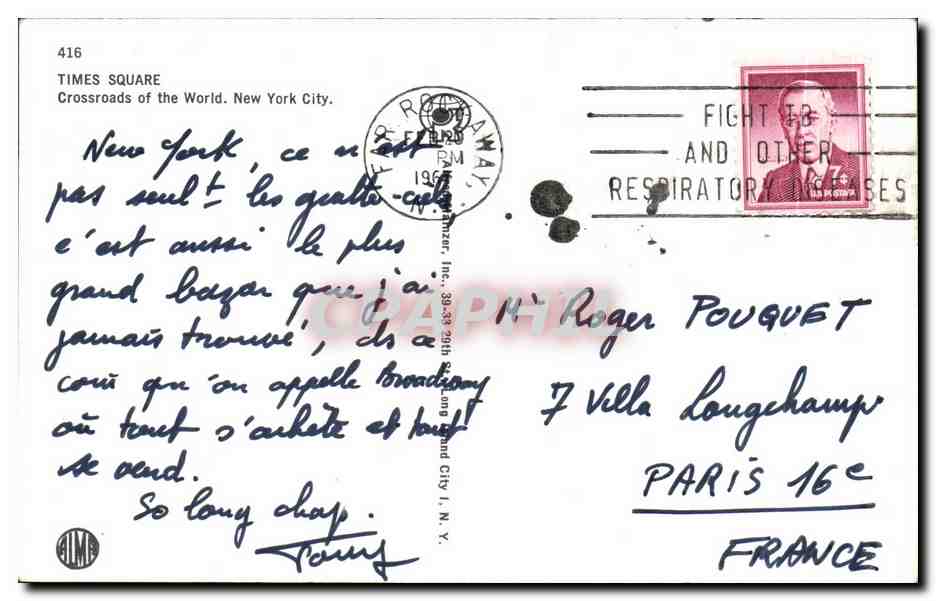 416
TIMES SQUARE
Crossroads of the World. New York City.
New York, ce n'est
pas seult les gratte-ciel
c'est aussi le plus
grand bazar que j'ai
jamais trouvé, ds ce
coin qu'on appelle Broadway
où tout s'achète et tout
se vend.
So long chap.
Tony
ALMA
FAR ROCKAWAY,
FEB 25
PM
196
N.
FIGHT TB
AND OTHER
RESPIRATORY DISEASES
7¢
U.S. POSTAGE
Inc., 39-33 29th St., Long Island City 1, N. Y.
Mr Roger POUQUET
7 Villa Longchamp
PARIS 16e
FRANCE
CPAPHIL